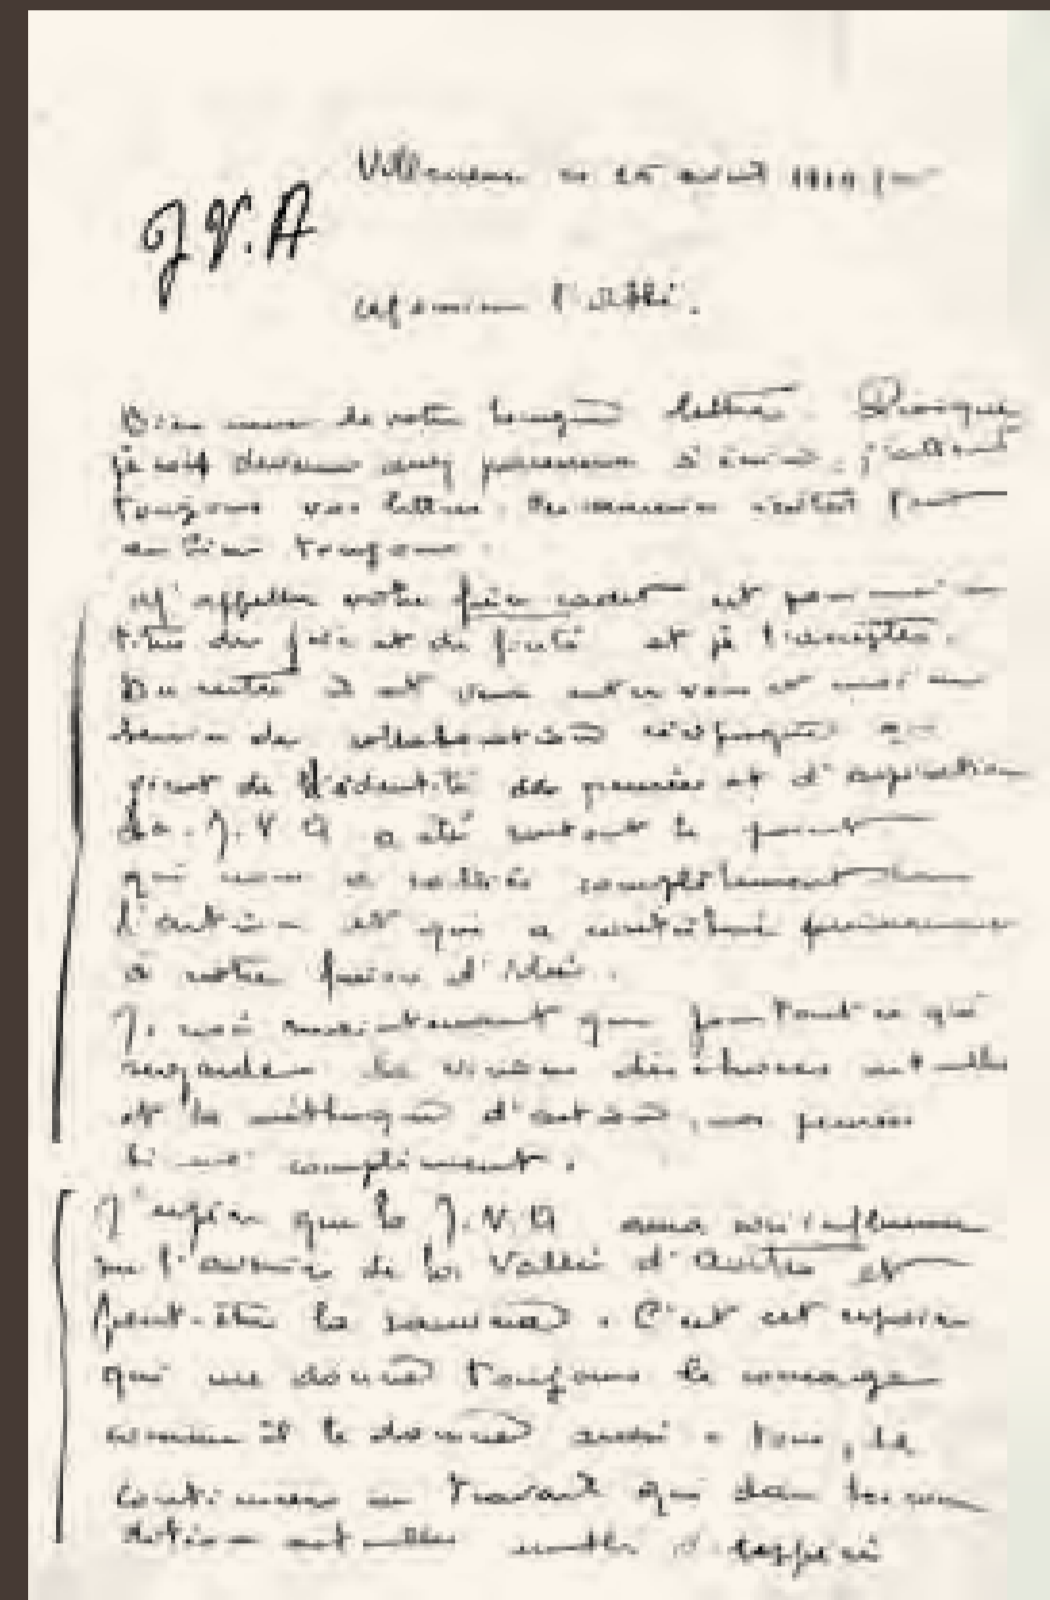 J.V.A
Villeneuve
l'Abbé.
Bien reçu de votre longue lettre. Quoique
je sois devenu assez paresseux à écrire, j'attend
toujours vos lettres.
toujours.
M'appeler votre frère cadet est pour moi un
titre de joie et de fierté et je l'accepte.
Du reste il est venu entre vous et moi un
besoin de collaboration réciproque
de l'identité des pensées et d'aspiration
La J.V.A a été surtout le point
qui nous a complètement dans
l'action et qui a contribué
à notre fusion d'idées.
Je vois maintenant que pour tout ce qui
regarde la vision des choses actuelles
et la méthode d'action, nos pensées
complément.
J'espère que la J.V.A aura son influence
sur l'avenir de la Vallée d'Aoste et
peut-être la sauvera. C'est cet espoir
qui me donne toujours le courage
comme il te donne aussi à toi, de
continuer un travail qui dans les con-
ditions actuelles semble